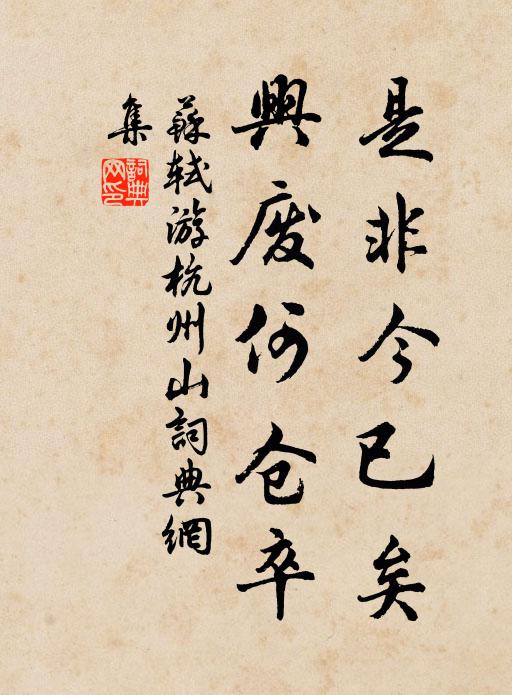 是非今已矣
興廢何仓卒
蘇軾游杭州山詞典網
集
詞典
网印